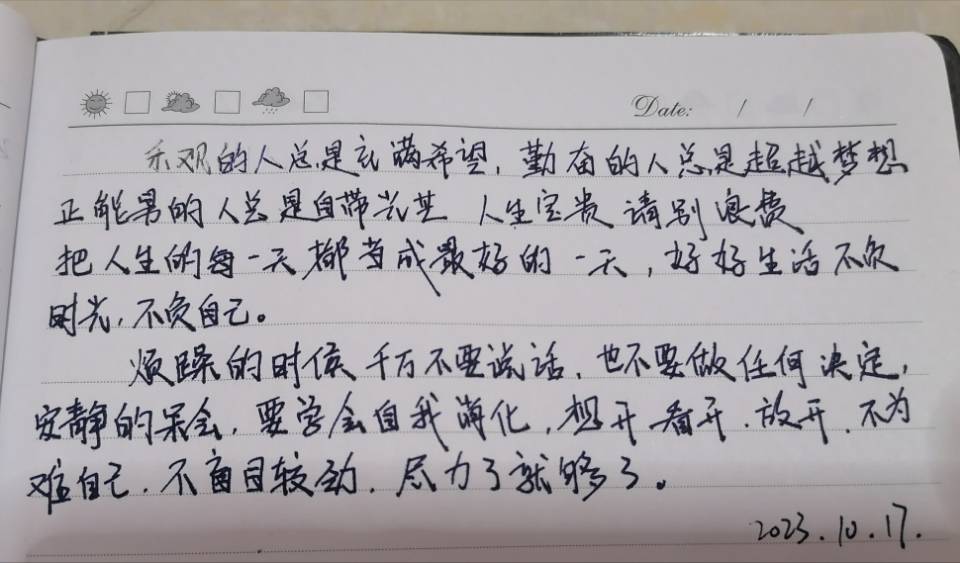 Date: / /
乐观的人总是充满希望，勤奋的人总是超越梦想
正能量的人总是自带光芒 人生宝贵 请别浪费
把人生的每一天都当成最好的一天，好好生活不负
时光，不负自己。
烦躁的时候千万不要说话，也不要做任何决定，
安静的呆会，要学会自我消化，想开.看开.放开.不为
难自己.不盲目较劲.尽力了就够了。
2023.10.17.